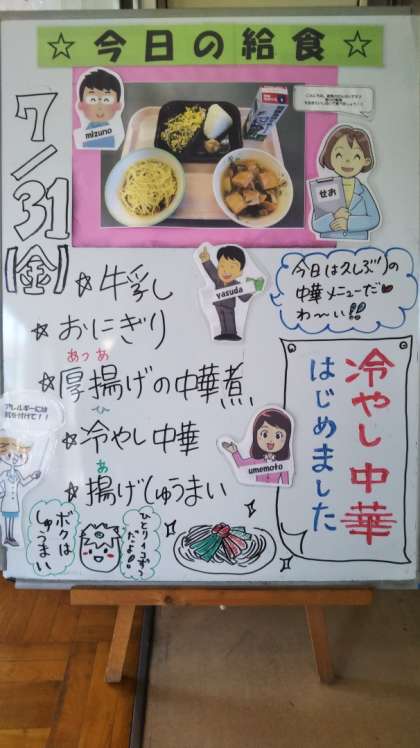 ☆今日の給食☆
mizuno
せお
7/31
(金)
yasuda
今日は久しぶりの
中華メニューだ♥
わ〜い!!
☆牛乳
☆おにぎり
あつ あ
☆厚揚げの中華煮
ひ
☆冷やし中華
あ
☆揚げしゅうまい
アレルギーには
気を付けて!!
umemoto
冷やし中華
はじめました
ボクは
しゅうまい
だよ!!